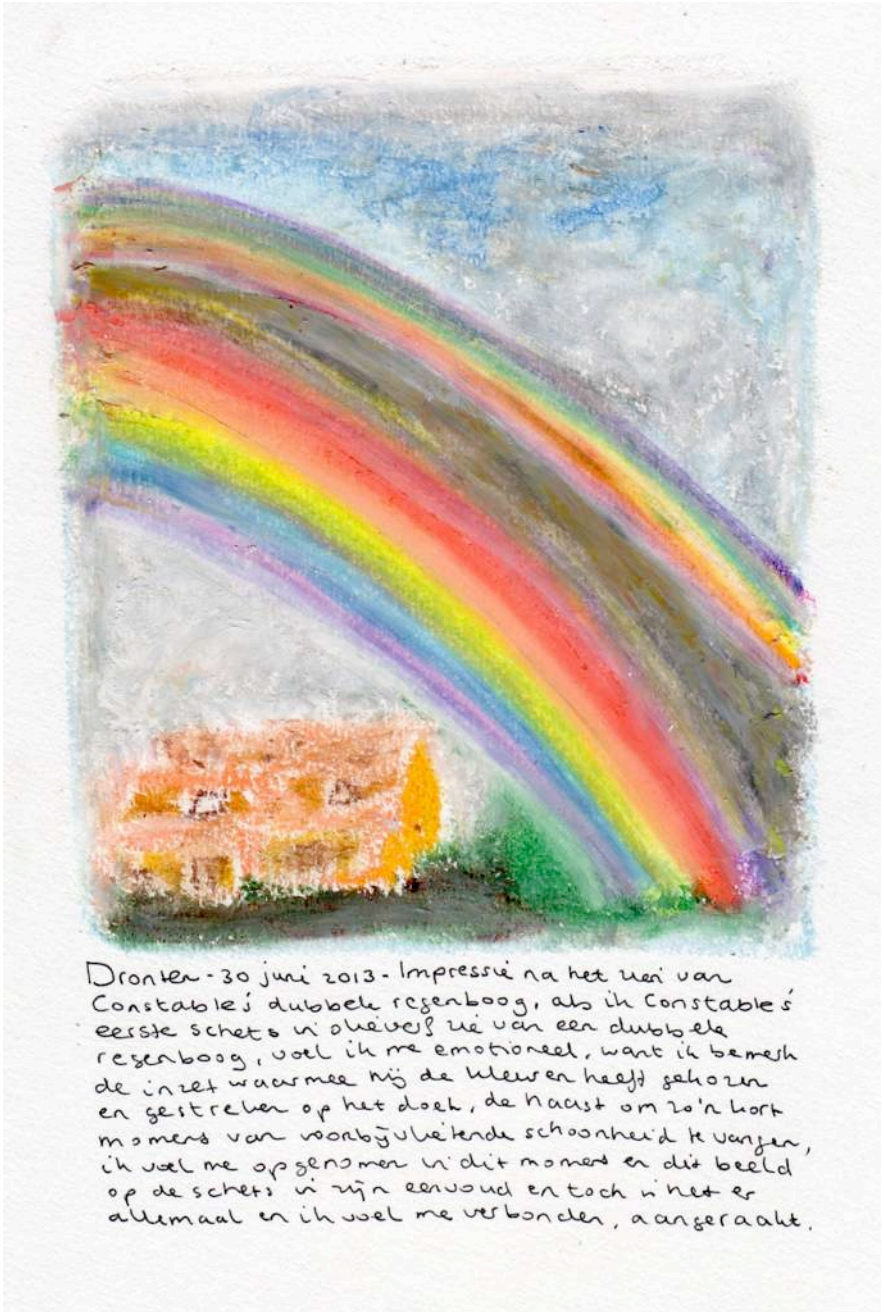 Dronten - 30 juni 2013 - Impressie na het zien van
Constable's dubbele regenboog, als ik Constable's
eerste schets in olieverf zie van een dubbele
regenboog, voel ik me emotioneel, want ik bemerk
de inzet waarmee hij de kleuren heeft gekozen
en gestreken op het doek, de haast om zo'n kort
moment van voorbijvlietende schoonheid te vangen,
ik voel me opgenomen in dit moment en dit beeld
op de schets in zijn eenvoud en toch is het er
allemaal en ik voel me verbonden, aangeraakt.